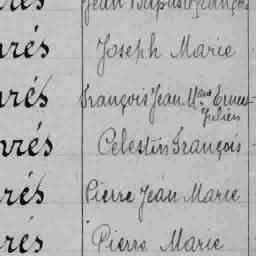 Jean Baptiste François
rés Joseph Marie
rés François Jean Mie Ernest
Julien
rés Célestin François
rés Pierre Jean Marie
rés Pierre Marie